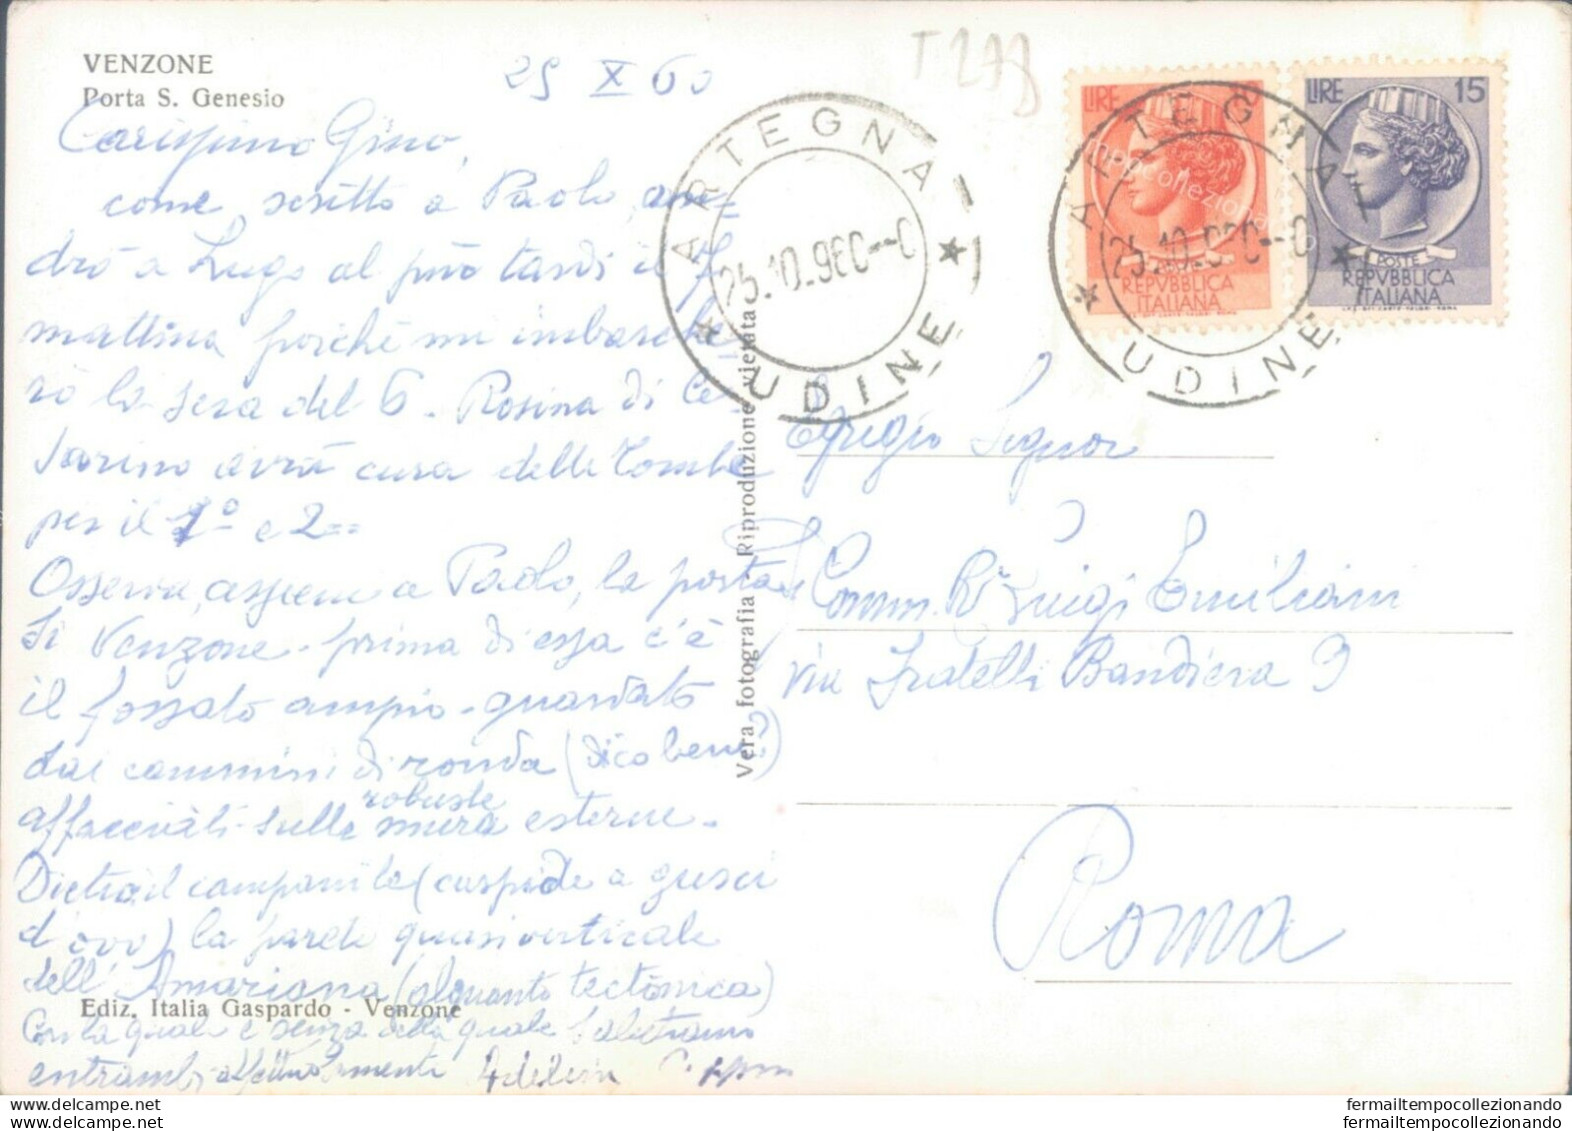 VENZONE
Porta S. Genesio
25 X 60
T 273
Carissimo Gino,
come scritto a Paolo, an-
drò a Lugo al più tardi il 7
mattina poiché mi imbarche-
rò la sera del 6. Rosina di Ce-
sarino avrà cura delle Tombe
per il 1° e 2 =
Osserva, assieme a Paolo, la porta
di Venzone - prima di essa c'è
il fossato ampio - guardato
dai cammini di ronda (dico bene?)
affacciati sulle robuste mura esterne.
Dietro il campanile (cuspide a gusci
d'ovo) la parete quasi verticale
dell'Amariana (alquanto tectonica)
Ediz. Italia Gaspardo - Venzone
Con la quale e senza della quale salutiamo
entrambi affettuosamente
Vera fotografia - Riproduzione vietata
ARTEGNA
25.10.960--0
★ UDINE ★
ARTEGNA
25.10.960--0
★ UDINE ★
LIRE
POSTE
REPVBBLICA
ITALIANA
LIRE 15
POSTE
REPVBBLICA
ITALIANA
Egregio Signor
Comm. Rag. Luigi Emiliani
via Fratelli Bandiera 9
Roma
fermailtempocollezionando
fermailtempocollezionando
fermailtempocollezionando
fermailtempocollezionando